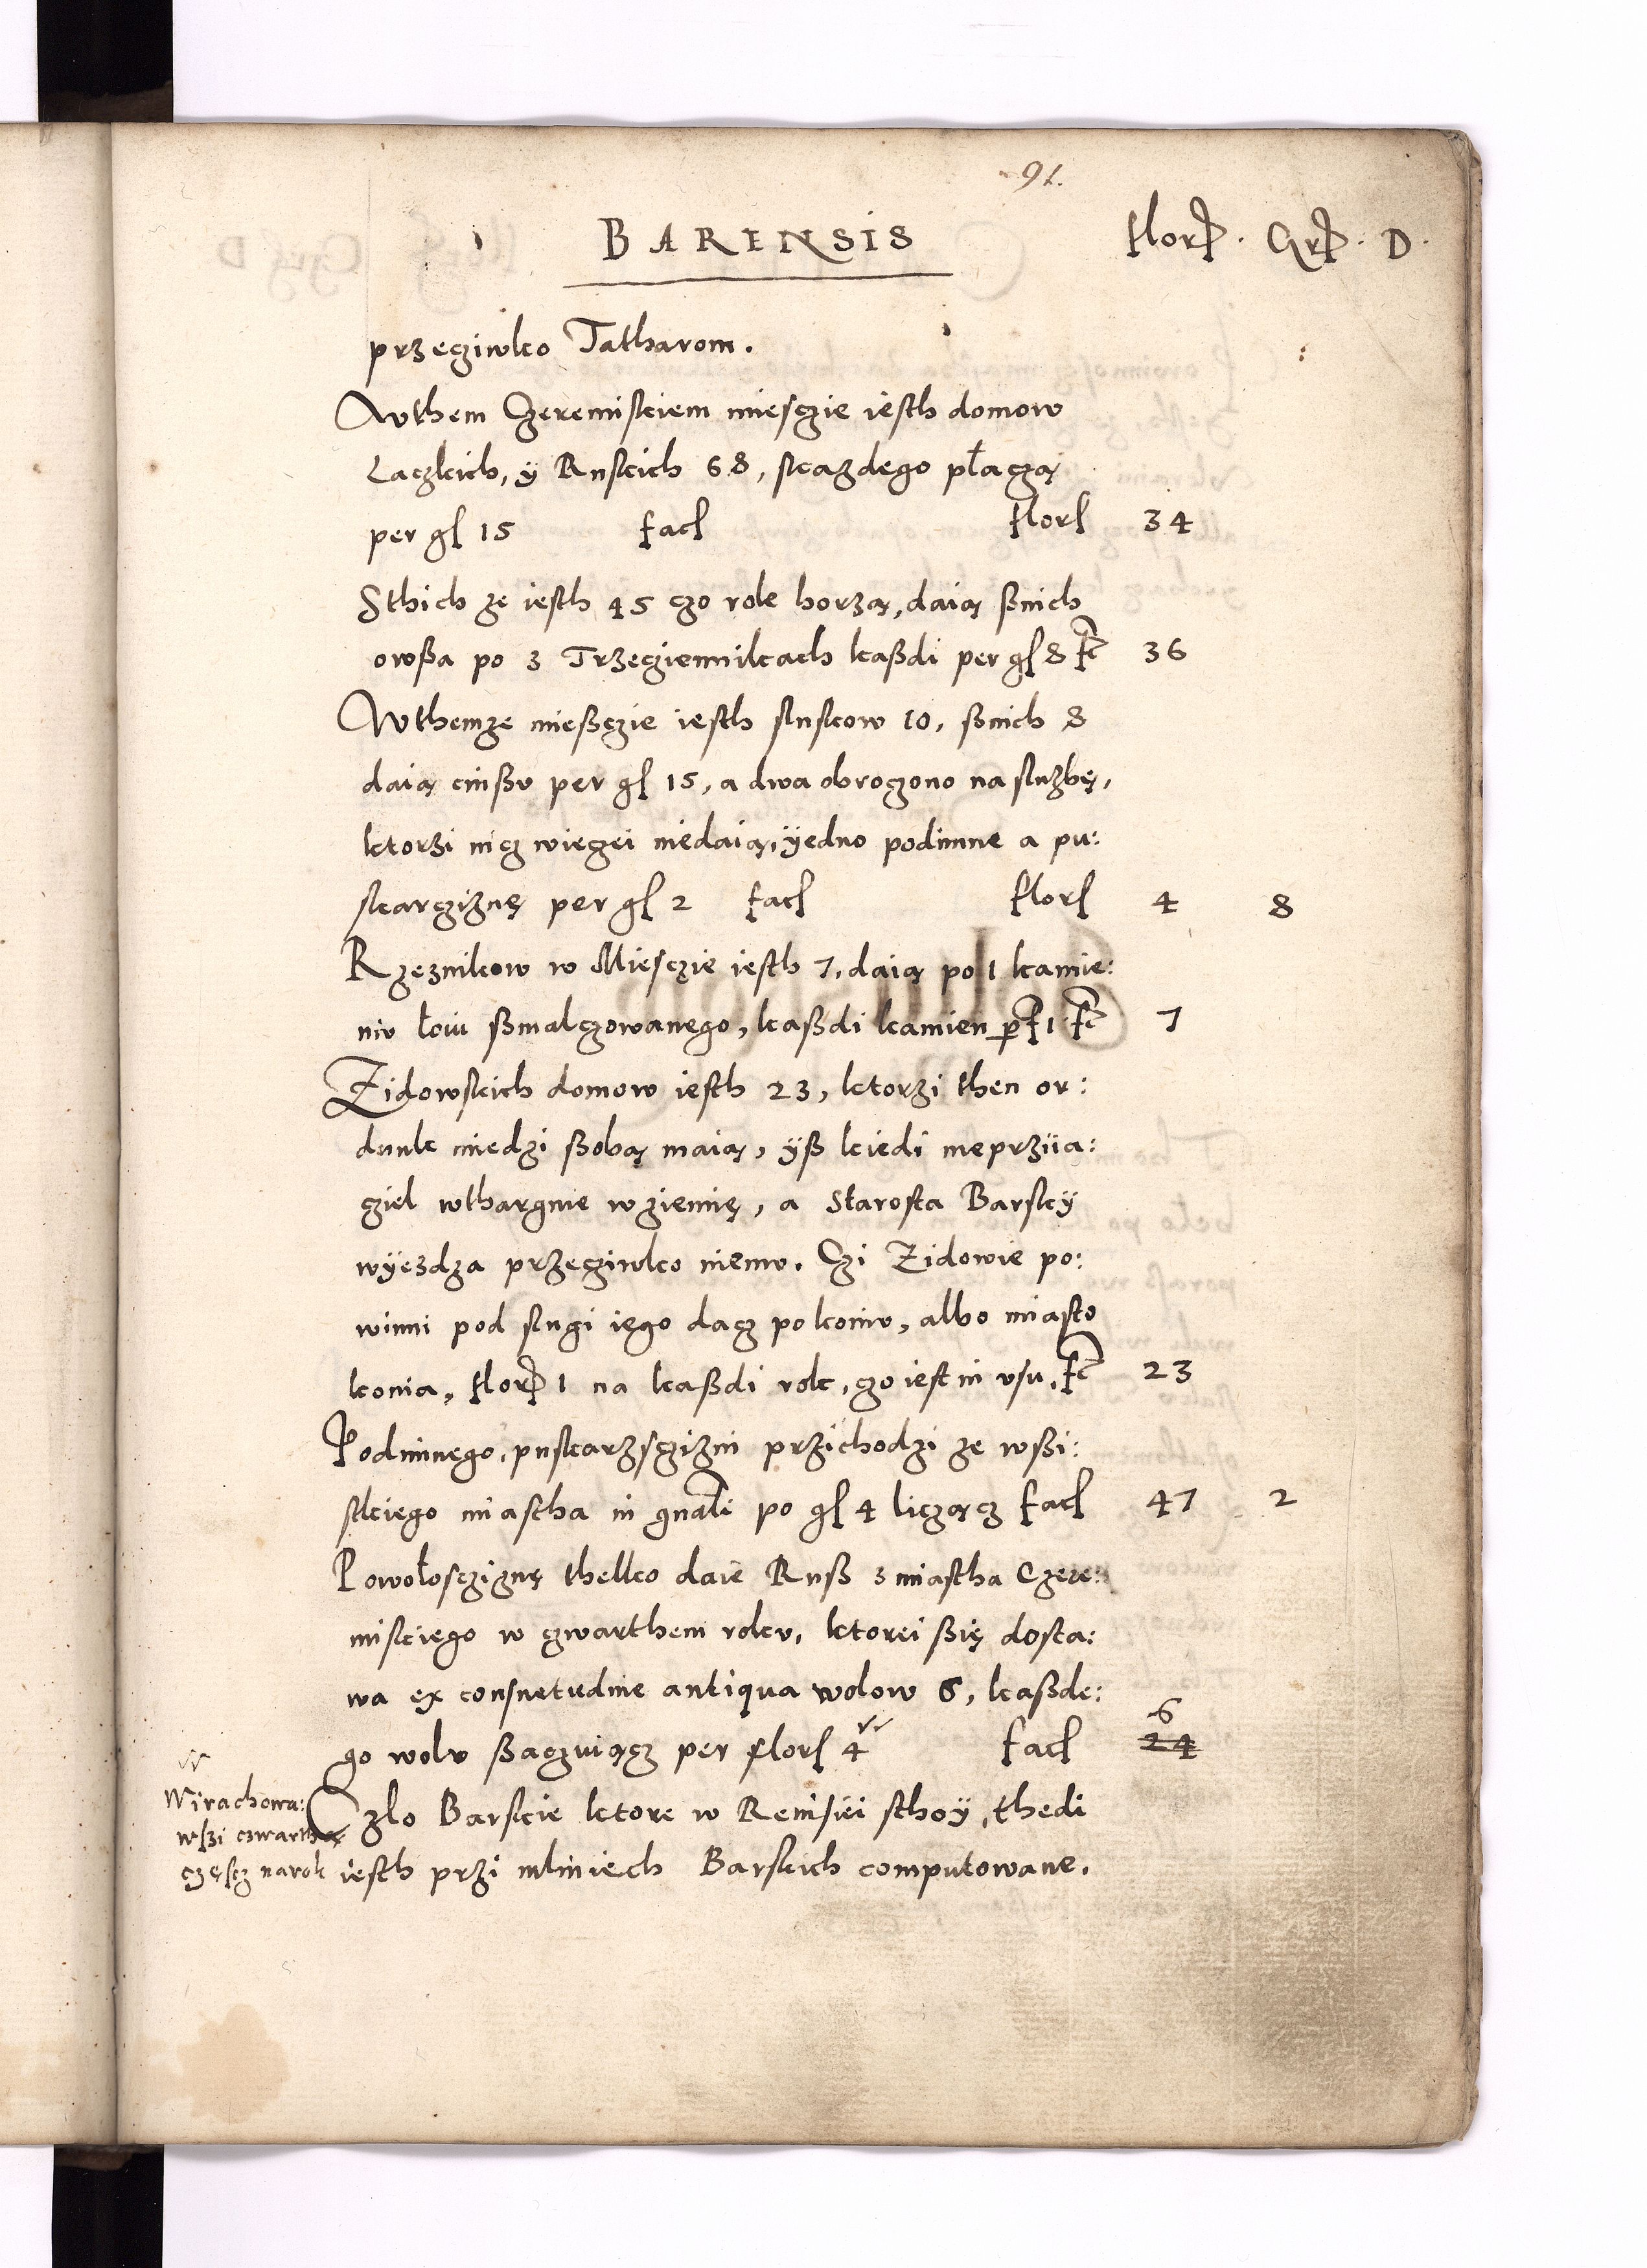 91.
BARENSIS florꝭ. Grꝭ. D.
przecziwko Tatharom.
Wthem Czeremiskiem miesczie iesth domow
Laczkich, ÿ Ruskich 68, skazdego płaczą
per gſ 15 facſ florſ 34
Sthich ze iesth 45 czo role horzą, daią ßnich
owßa po 3 Trzeciennikach kaßdi per gſ 8 fc 36
Wthemze mießczie iesth sluskow 10, ßnich 8
daią cinßv per gſ 15, a dwa obroczono na służbę,
ktorzi nicz wieczei niedaią, ÿedno podimne a pu:
skarcziznę per gſ 2 facſ florſ 4 8
Rzeznikow w Miesczie iesth 7, daią po 1 kamie:
niv łoiu ßmalczowanego, kaßdi kamien p f 1 fc 7
Zidowskich domow iesth 23, ktorzi then or:
dunk miedzi ßobą maią, ÿß kiedi nieprziia:
ciel wthargnie w ziemię, a Starosta Barskÿ
wÿezdza przecziwko niemv. Czi Zidowie po:
winni pod slugi iego dacz po koniv, albo miasto
konia, florꝭ 1 na kaßdi rok, czo iest in vsu. fc 23
Podimnego, puskarzsczizni przichodzi ze wßi:
stkiego miastha in gnali po gſ 4 liczącz facſ 47 2
Powołosczignę thelko daie Rusß z miastha Czere:
miskiego w czwarthem rokv, ktorei ßię dosta:
wa ex consuetudine antiqua wolow 6, kaßde:
go wolv ßaczuiącz per florſ 4 facſ 6
24
Wirachowa:
wszi czwarthą
częscz na rok
Czlo Barskie ktore w Remisii sthoÿ, thedi
iesth przi mliniech Barskich computowane.